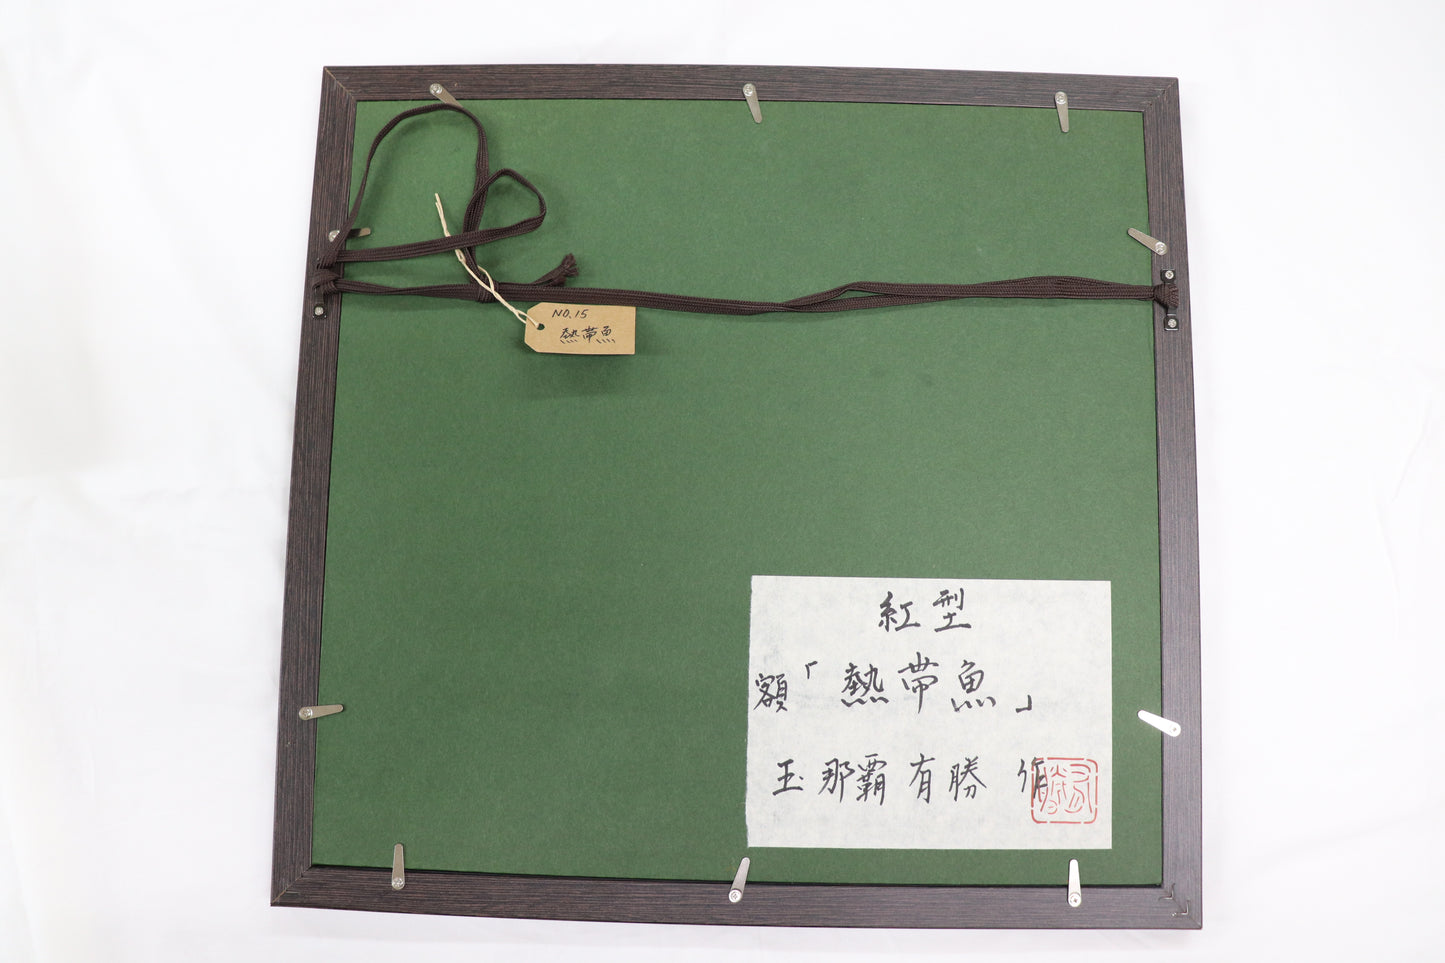 NO.15
熱帯魚
紅型
額「熱帯魚」
玉那覇有勝 作
有勝